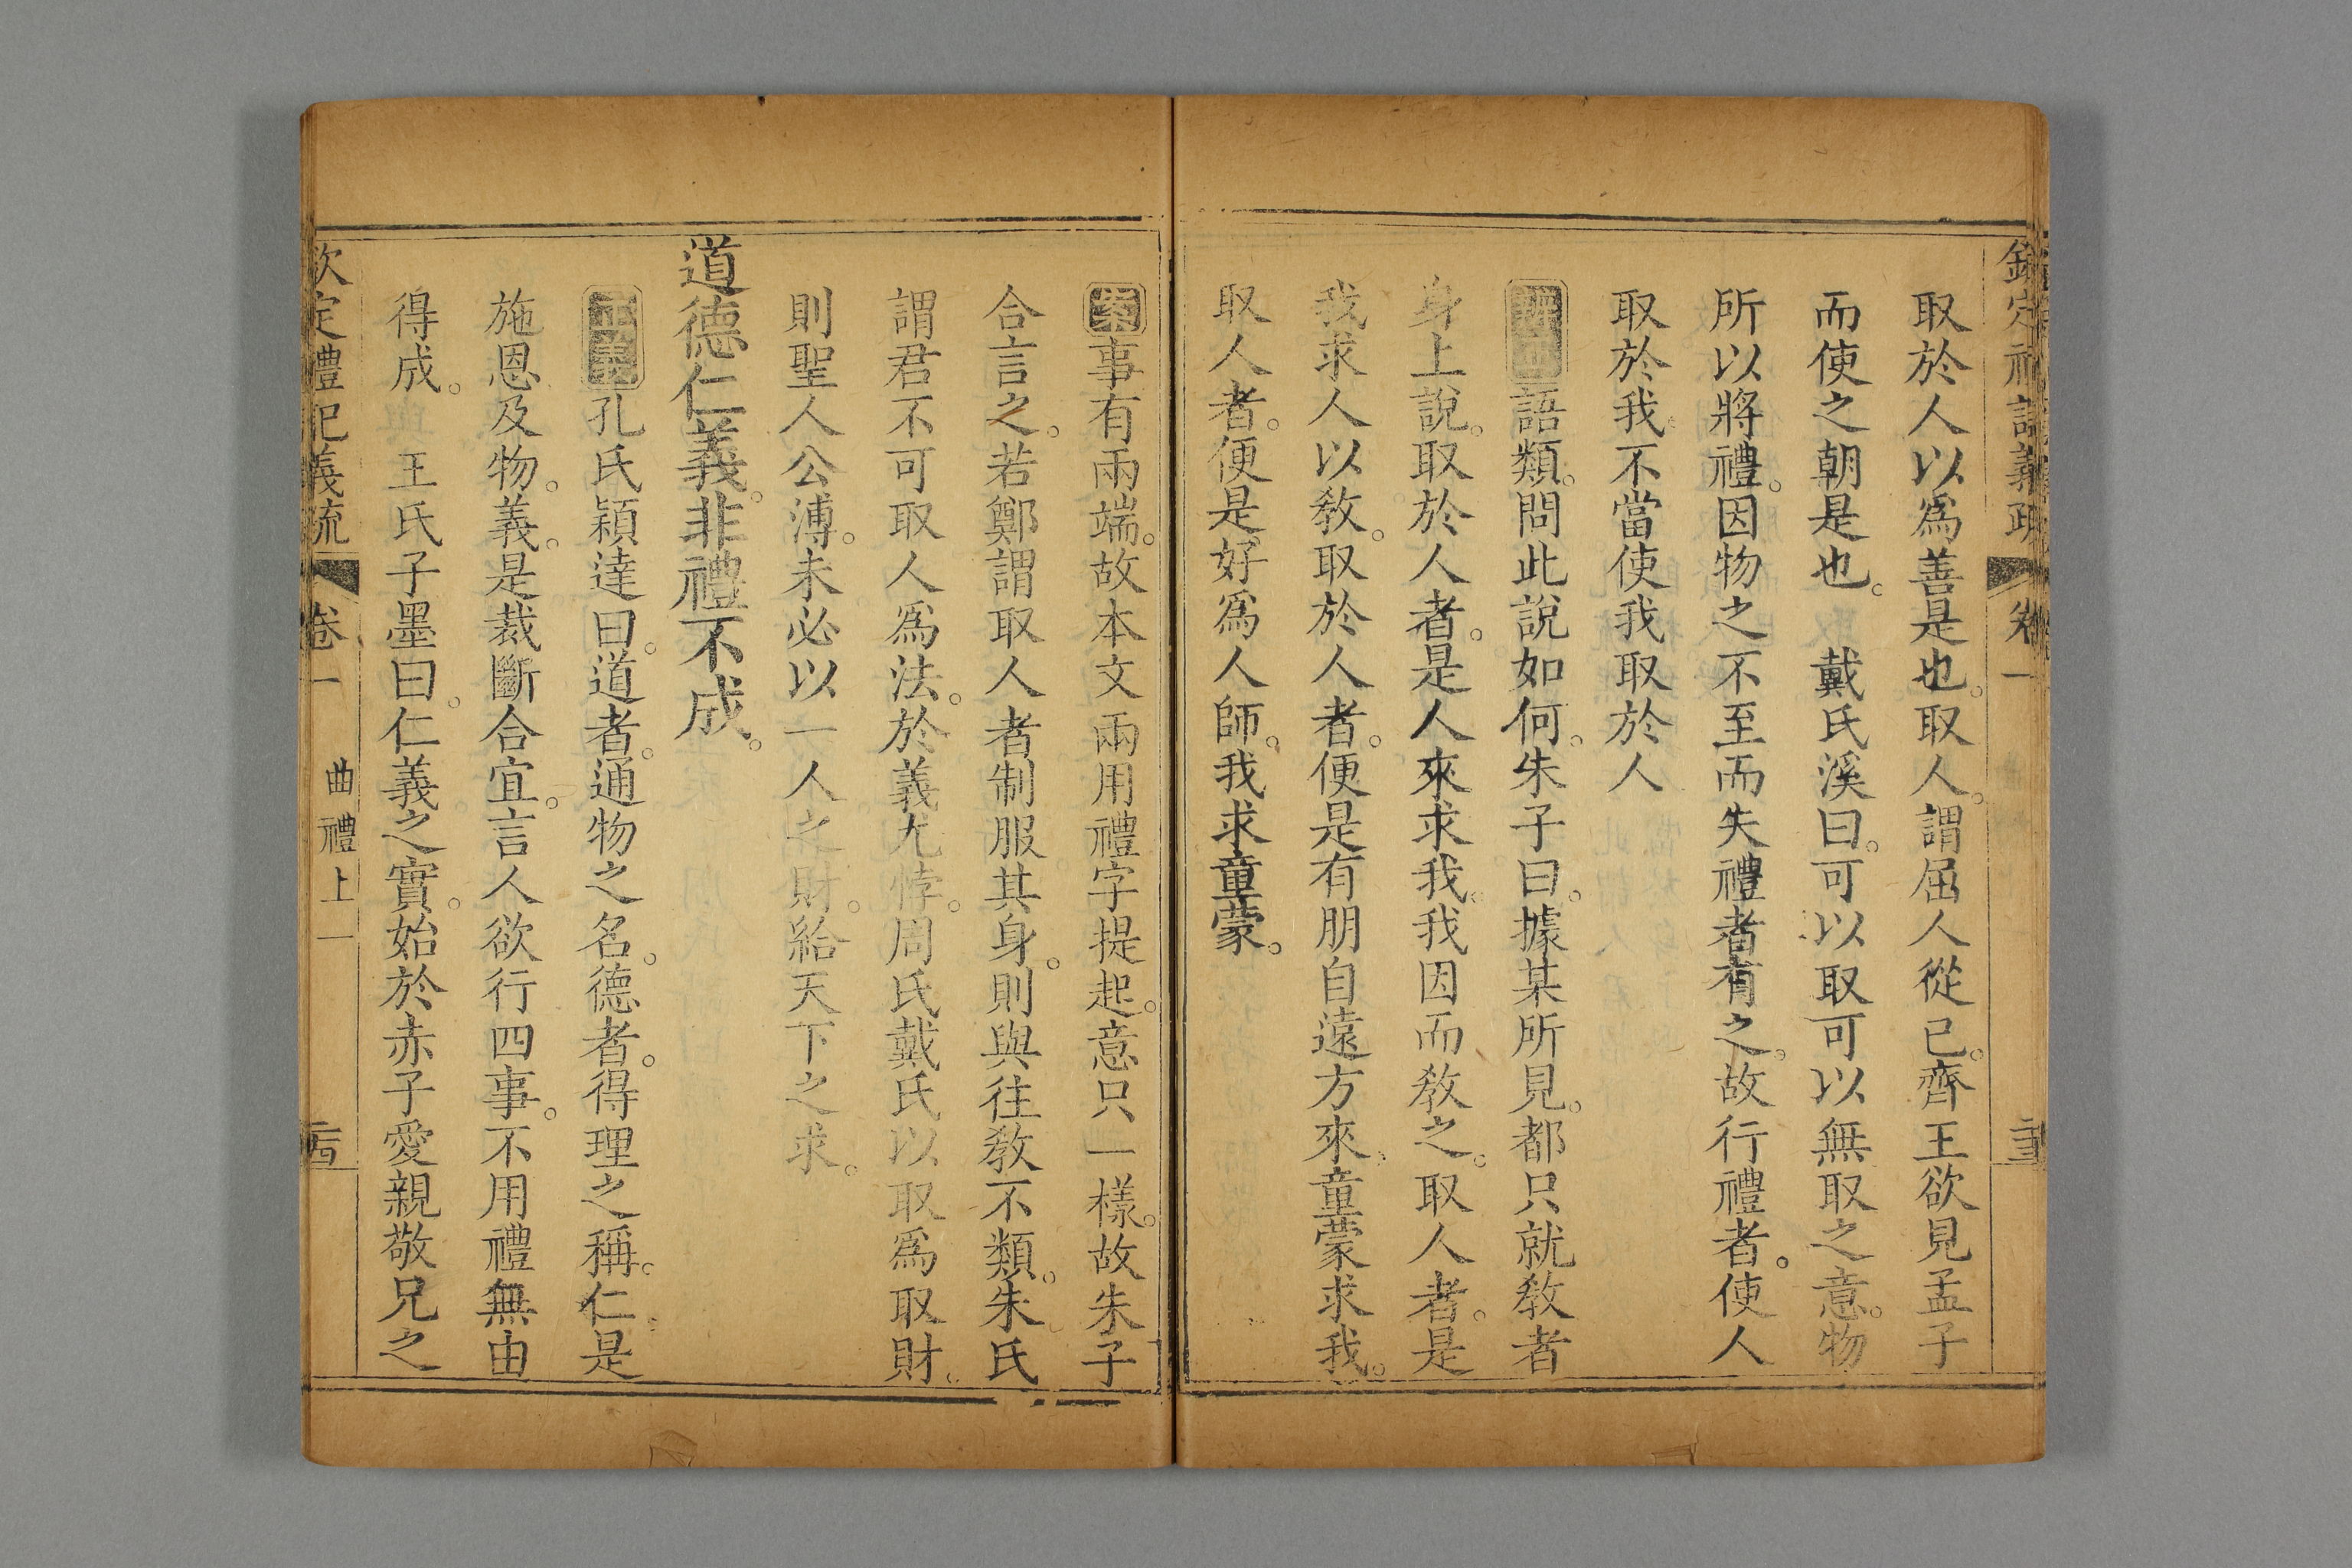 欽定禮記義疏 卷一
取於人以爲善是也。取人。謂屈人從已。齊王欲見孟子
而使之朝是也。 戴氏溪曰。可以取可以無取之意。物
所以將禮。因物之不至而失禮者有之。故行禮者。使人
取於我。不當使我取於人
語類。問此說如何。朱子曰。據某所見。都只就敎者
身上說。取於人者。是人來求我。我因而敎之。取人者。是
我求人以敎。取於人者。便是有朋自遠方來。童蒙求我。
取人者。便是好爲人師。我求童蒙。
案事有兩端。故本文兩用禮字提起。意只一樣。故朱子
合言之。若鄭謂取人者制服其身。則與往敎不類。朱氏
謂君不可取人爲法。於義尤悖。周氏戴氏以取爲取財。
則聖人公溥。未必以一人之財。給天下之求。
道德仁義。非禮不成。
正義孔氏穎達曰。道者。通物之名。德者。得理之稱。仁是
施恩及物。義。是裁斷合宜。言人欲行四事。不用禮無由
得成。 王氏子墨曰。仁義之實。始於赤子愛親敬兄之
欽定禮記義疏 卷一 曲禮上一